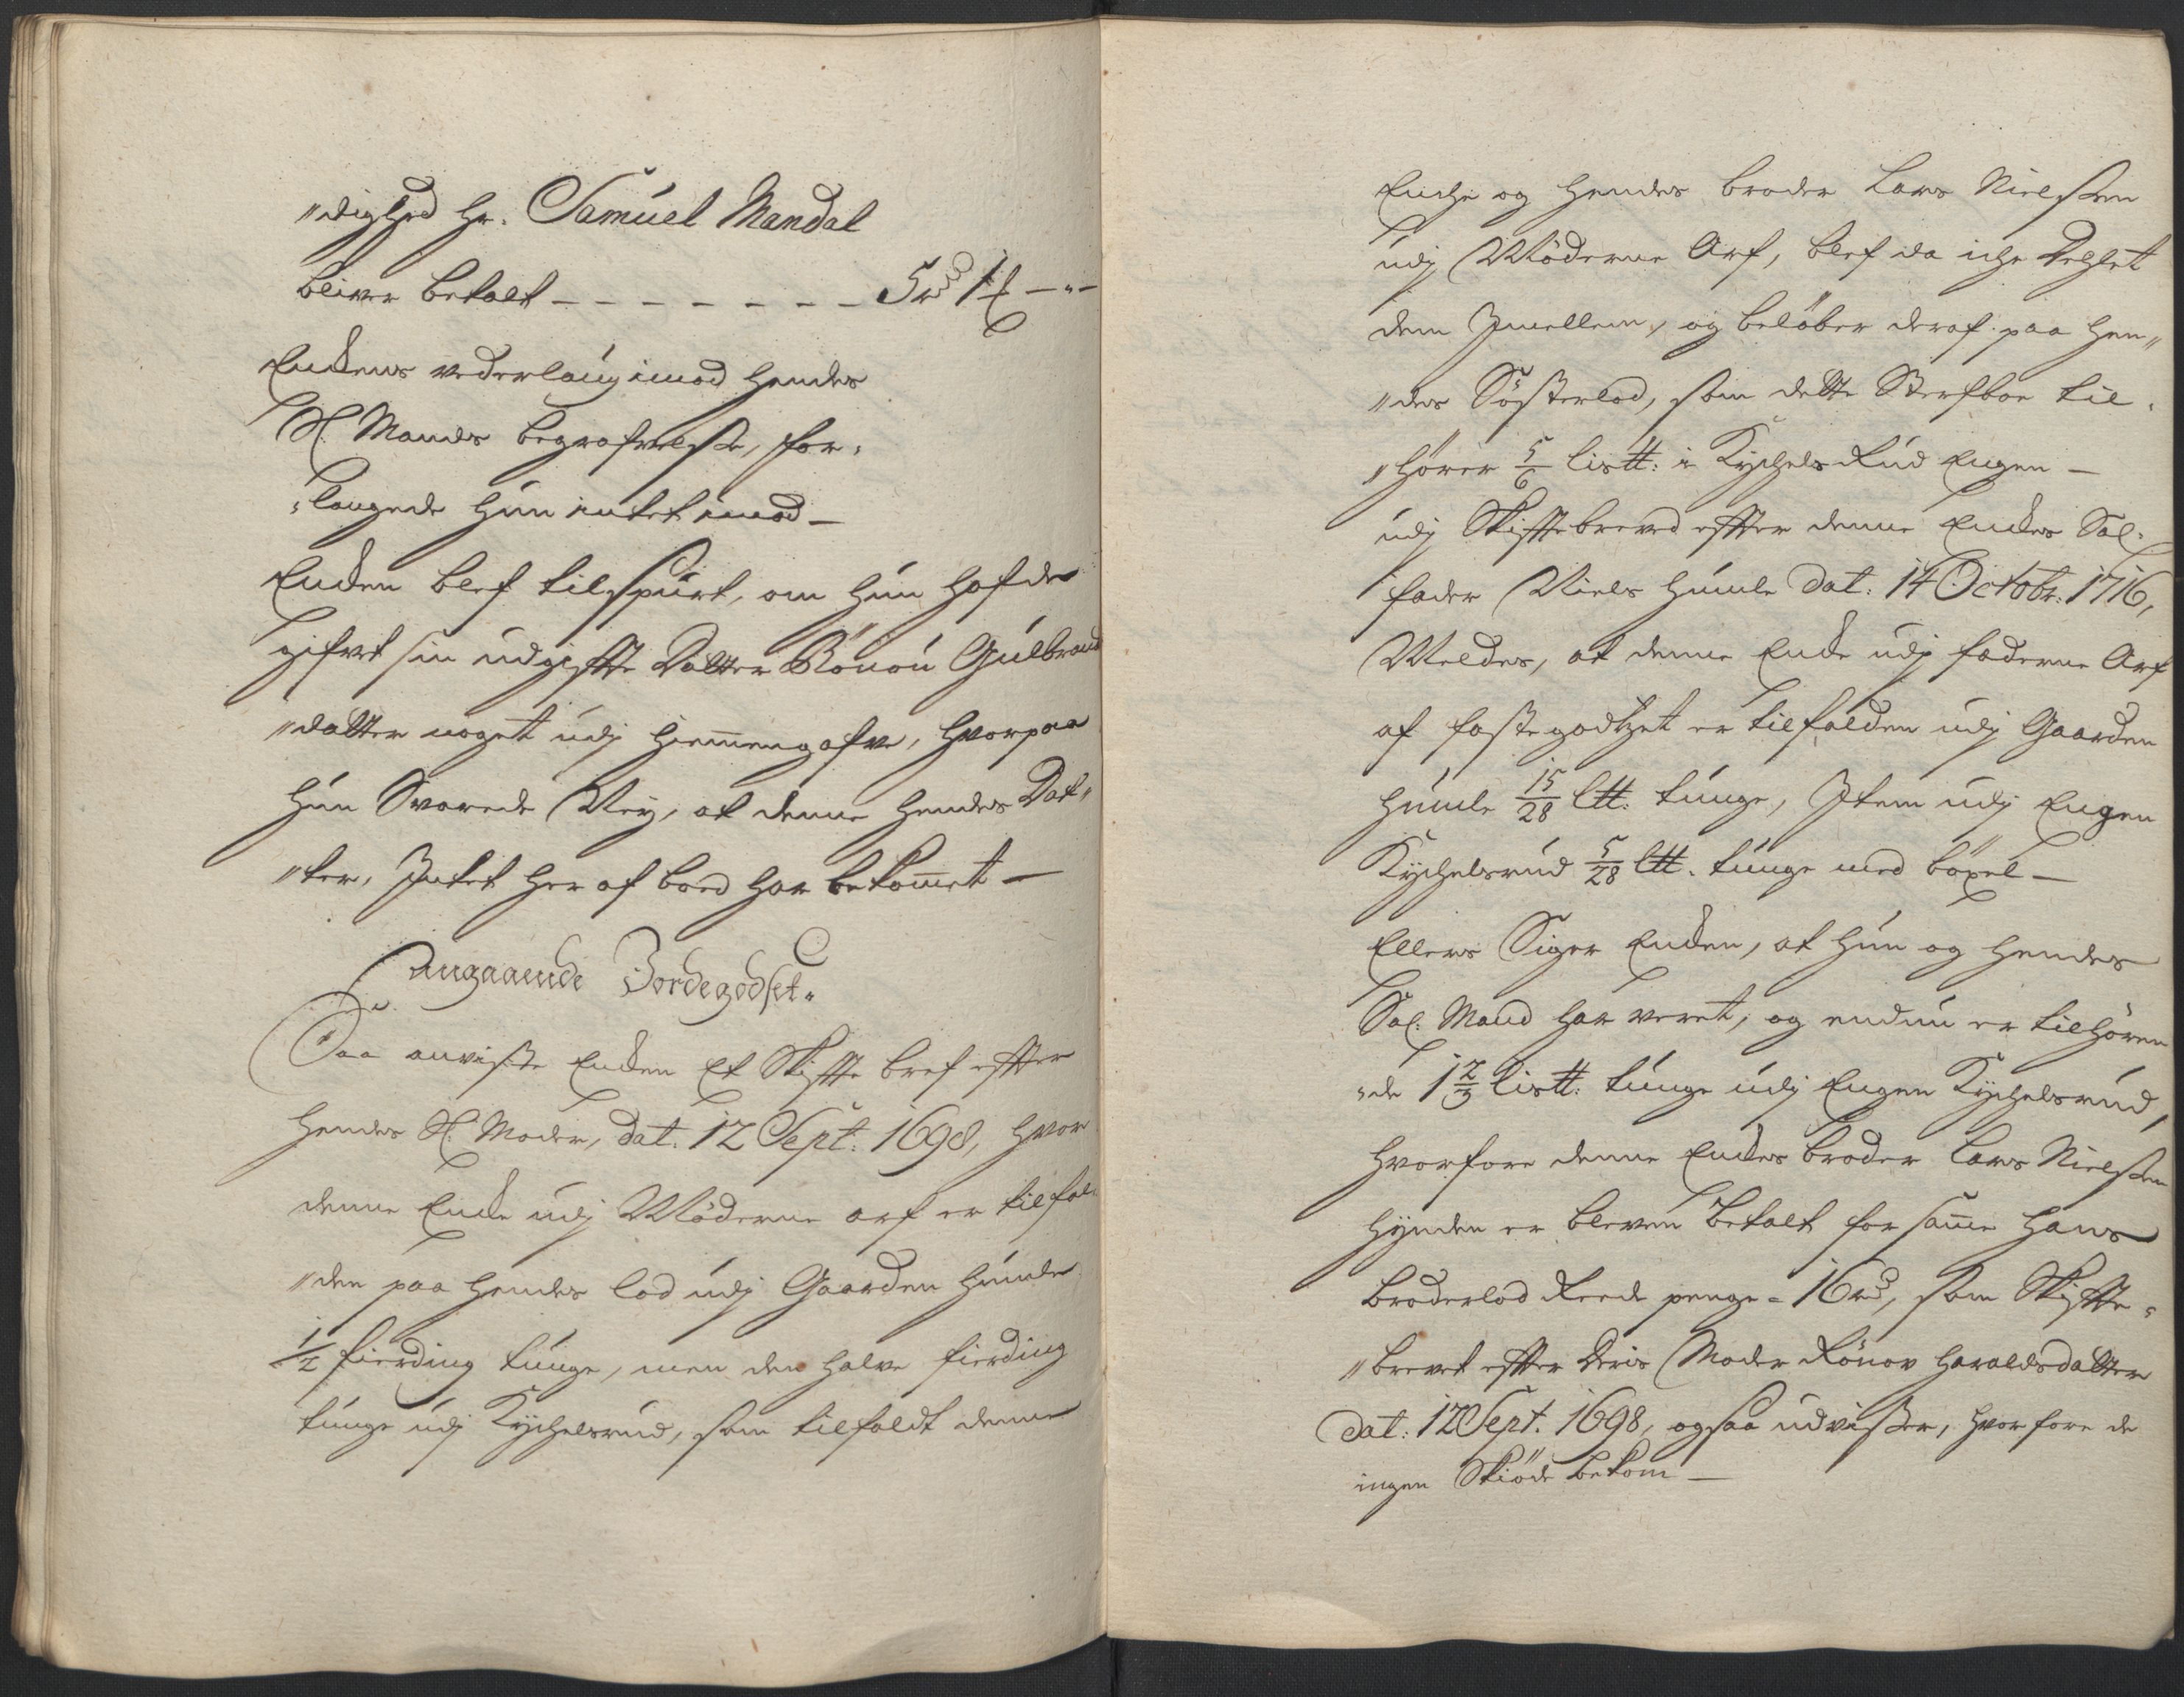 "dighed hr. Samuel Mandal
bliver betalt - - - - - - - - 5 rd 1 ℔ - " -
Enckens vederlaug imod hendes
Sl. Mands begrafvelse, for,
"langede hun intet imod -
Encken blef tilspurt, om hun hafde
gifvet sin udgiffte Datter Rönou Gulbrands
"datter noget udj hiemmengafve, hvorpaa
hun Svarede Nej, at denne hendes Dat"
"ter, Intet her af boed har bekommet -
Angaaende Jordegodset.
Saa anviste Encken Et Skiffte bref effter
hendes Sl. Moder, Dat. 12 Sept: 1698, hvor
denne Encke udj Möderne arf er tilfal,
"den paa hendes lod udj Gaarden Humle
1/2 fierding tunge, men den halve fierding
tunge udj Kychelsrud, som tilfaldt denne
Enche og hendes broder Lars Nielssen
udj Möderne Arf, blef da iche Dehlet
dem Imellem, og belöber deraf paa hen"
"des Söster lod, som dette Sterfboe til,
"hörer 5/6 lis℔: i Kychels Rud Eugen -
udj Skifftebreved effter denne Enckes Sal.
fader Niels Humle Dat: 14 Octobr: 1716,
Meldes, at denne Encke udj faderne Arf
af faste godtzet er tilfalden udj Gaarden
Humle 15/28 l℔: tunge, Item udj Eugen
Kychelsrud 5/28 l℔. tunge med böxel -
Ellers Siger Encken, at hun og hendes
Sal: Mand har veret, og endnu er tilhören
"de 1 2/3 lis℔: tunge udj Eugen Kychelsrud,
hvorfore denne Enckes broder Lars Nielssen
Hynden er bleven betalt for samme hans
broderlod Reede penge - 16 rd, som Skiffte,
"brevet effter deris Moder Rönov Haraldsdatter
Dat: 12 Sept. 1698, ogsaa udviser, hvorfore de
ingen Skiöde bekom -